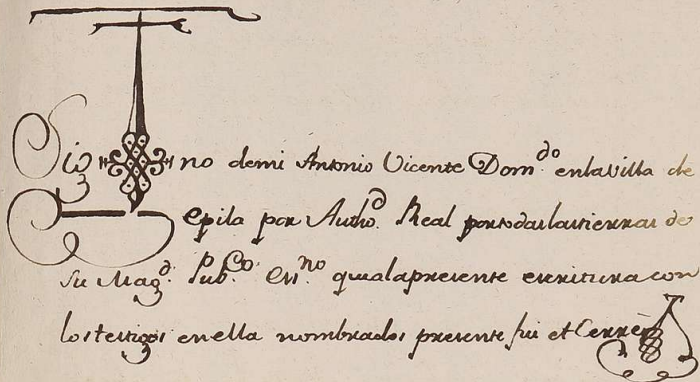 Sig no demi Antonio Vicente Dom.do enlavilla de
epila por Autho.d Real portodaslastierras de
su Mag.d Pub.co Ess.no quealapresente escritura con
lostestigos enella nombrados presente fui et Cerrè